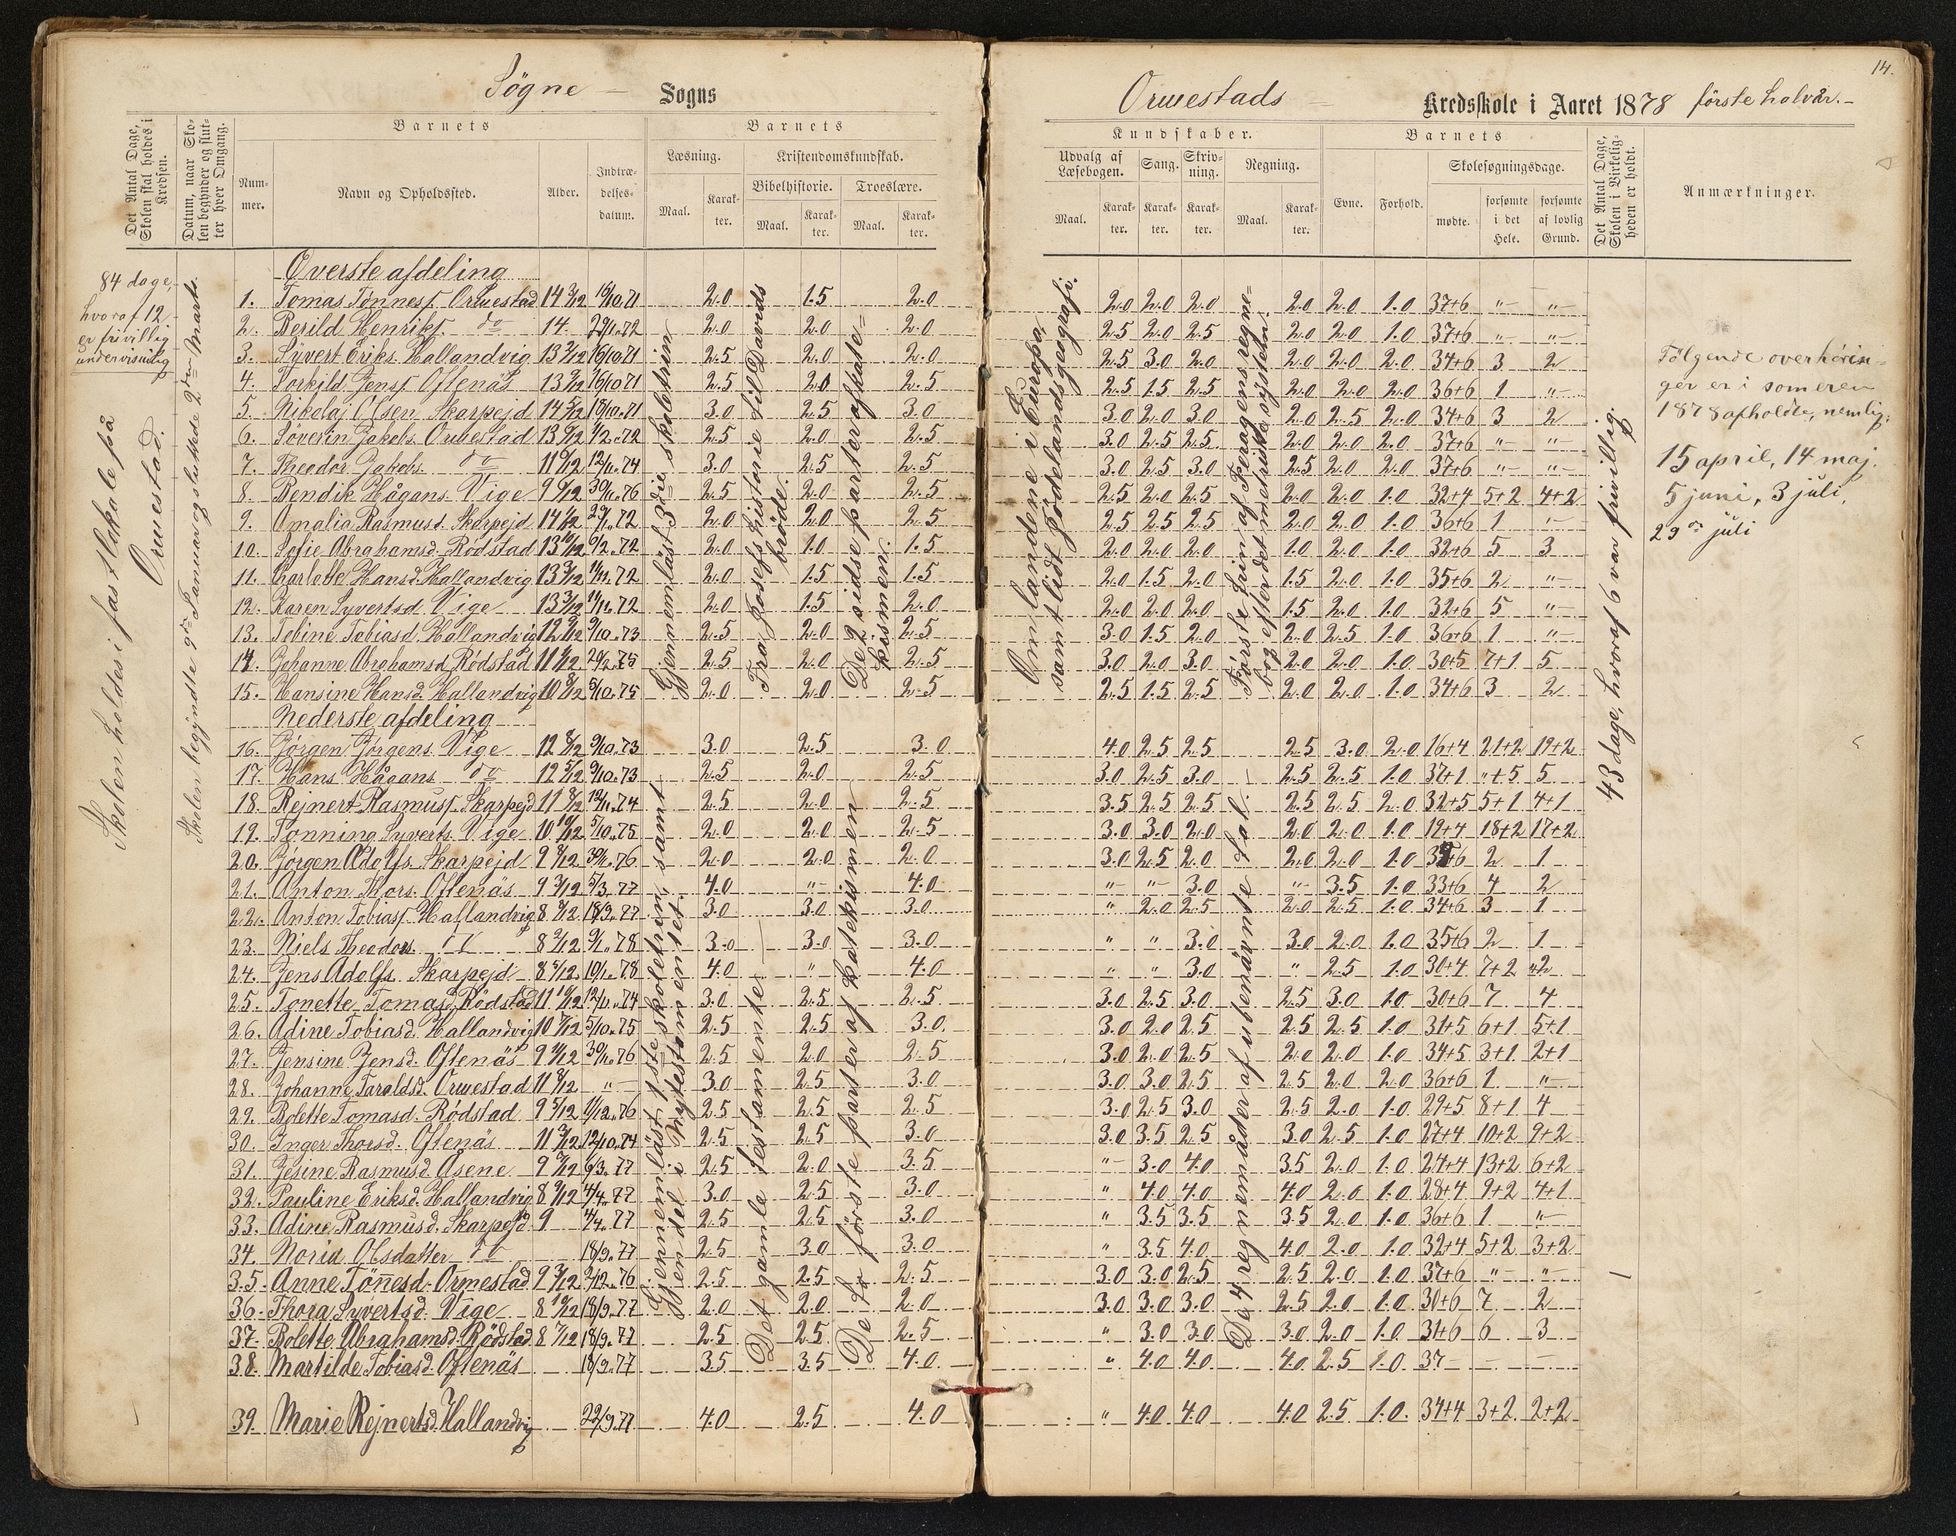 14.
Søgne — Sogns
Ormestads — Kredsskole i Aaret 1878 første halvår. –
Det Antal Dage, Skolen skal holdes i Kredsen.
Datum, naar Skolen begynder og slutter hver Omgang.
Barnets
Nummer.
Navn og Opholdssted.
Alder.
Indtrædelsesdatum.
Barnets
Læsning.
Kristendomskundskab.
Bibelhistorie.
Troeslære.
Maal.
Karakter.
Maal.
Karakter.
Maal.
Karakter.
Kundskaber.
Udvalg af Læsebogen.
Sang.
Skrivning.
Regning.
Maal.
Karakter.
Karakter.
Karakter.
Maal.
Karakter.
Barnets
Evne.
Forhold.
Skolesøgningsdage.
mødte.
forsømte i det Hele.
forsømte af lovlig Grund.
Det Antal Dage, Skolen i Virkeligheden er holdt.
Anmærkninger.
84 dage,
hvoraf 12
er frivillig
undervisning
Skolen holdes i fast lokale på
Ormestad.
Skolen begyndte 9de Januar og sluttede 2den Marts.
Øverste afdeling
1. Tomas Tønnesf. Ormestad 14 3/12 2.0 1.5 2.0 2.0 2.0 2.0 2.0 2.0 1.0 37+6 „ „
2. Berild Henriksf. do 14. 2.0 2.0 2.0 2.5 2.0 2.5 2.0 2.0 1.0 37+6 „ „
3. Syvert Eriks. Hallandvig 2.5 2.0 2.0 2.5 3.0 2.0 2.0 2.0 2.0 34+6 3 2
4. Torkild Jensf. Oftenäs 2.5 2.0 2.5 2.5 1.5 2.5 2.0 2.0 2.0 36+6 1 „
5. Nikolaj Olsen Skarpejd 14 5/12 3.0 2.5 3.0 3.0 2.0 3.0 2.0 2.5 2.0 34+6 3 2
6. Søverin Jakobs. Ormestad 2.5 2.0 2.5 3.0 2.5 2.5 2.0 2.0 2.0 37+6 „ „
7. Theodor Jakobs. do 3.0 2.5 2.5 3.0 2.5 3.0 2.5 2.0 2.0 37+6 „ „
8. Bendik Hågans. Vige 2.5 2.0 2.5 2.5 2.0 2.5 2.0 2.0 1.0 32+4 5+2 4+2
9. Amalia Rasmusd. Skarpejd 2.0 2.0 2.5 2.5 2.5 2.5 2.0 2.0 1.0 36+6 1 „
10. Sofie Abrahamsd. Rødstad 13 10/12 2.0 1.0 1.5 2.0 2.0 2.0 1.0 2.0 1.0 32+6 5 3
11. Carlotte Hansd. Hallandvig 13 3/12 2.0 1.5 1.5 2.0 1.5 2.0 1.5 2.0 1.0 35+6 2 „
12. Karen Syvertsd. Vige 13 3/12 2.0 1.5 2.0 2.0 2.0 2.0 1.5 2.0 1.0 32+6 5 „
13. Tobine Tobiasd. Hallandvig 2.5 2.0 2.5 3.0 1.5 2.0 2.0 2.5 1.0 36+6 1 „
14. Johanne Abrahamsd. Rødstad 2.5 2.0 2.5 3.0 2.0 3.0 2.0 2.0 1.0 30+5 7+1 5
15. Hansine Hansd. Hallandvig 10 8/12 2.0 2.0 2.5 2.5 1.5 2.5 2.0 2.0 1.0 34+6 3 2
Gjennemläst 3die skoletrin
Fra Josefs historie til Davids
bröde.
De 2 sidste parter af kate-
kismen.
Om landene i Europa,
samt lidt Jødelandsgeografi.
Første trin af Feragens regne-
bog efter det metriske system.
43 dage, hvoraf 6 var frivillig.
Følgende overhörin-
ger er i someren
1878 afholdte, nemlig:
15 april, 14 maj.
5 juni, 3 juli,
29de juli
Nederste afdeling
16. Jørgen Jørgens. Vige 12 8/12 3.0 2.5 3.0 4.0 2.5 2.5 2.5 3.0 2.0 16+4 21+2 19+2
17. Hans Hågans. do 12 5/12 2.5 2.0 2.5 3.0 2.5 3.0 2.5 2.5 1.0 37+1 „+5 5
18. Rejnert Rasmusf. Skarpejd 11 8/12 2.5 2.0 2.5 3.5 2.5 2.5 2.5 2.5 2.0 32+5 5+1 4+1
19. Tønning Syverts. Vige 10 10/12 2.0 2.0 2.5 3.0 3.0 2.0 2.0 2.0 1.0 19+4 18+2 17+2
20. Jørgen Adolfs. Skarpejd 2.0 2.0 2.0 3.0 2.5 2.0 2.0 2.0 1.0 35+6 2 1
21. Anton Thors. Oftenäs 9 3/12 5/3.77 4.0 „ 4.0 „ „ 3.0 „ 3.5 1.0 33+6 4 2
22. Anton Tobiasf. Hallandvig 18/9.77 3.0 3.0 3.0 „ 2.0 2.5 2.0 2.5 1.0 34+6 3 1
23. Niels Theodors. 3.0 3.0 3.0 „ „ 3.0 3.0 2.0 1.0 35+6 2 1
24. Jens Adolfs. Skarpejd 10/1.78 4.0 „ 4.0 „ „ 3.0 „ 2.5 1.0 30+4 7+2 „2
25. Tonette Tomasd. Rødstad 3.0 2.5 2.5 3.0 2.5 3.0 2.5 3.0 1.0 30+6 7 4
26. Adine Tobiasd. Hallandvig 2.5 2.5 3.0 3.0 2.0 2.5 2.5 2.5 1.0 31+5 6+1 5+1
27. Jensine Jensd. Oftenäs 2.5 2.0 2.5 3.0 2.0 2.5 2.0 2.0 1.0 34+5 3+1 2+1
28. Johanne Taraldsd. Ormestad 11 8/12 „ 3.0 2.5 3.0 3.0 3.0 2.5 2.5 2.0 2.0 36+6 1 „
29. Bolette Tomasd. Rødstad 9 5/12 2.5 2.5 2.5 3.0 2.5 3.0 2.5 2.0 1.0 29+5 8+1 4
30. Inger Thorsd. Oftenäs 2.5 2.5 3.0 3.0 3.5 2.5 3.0 2.5 1.0 27+4 10+2 9+2
31. Jesine Rasmusd. Åsene 2.5 2.0 3.5 „ 3.0 4.0 3.5 2.0 1.0 24+4 13+2 6+2
32. Pauline Eriksd. Hallandvig 4/4.77 3.0 2.5 3.0 „ 4.0 4.0 4.0 2.0 1.0 28+4 9+2 4+1
33. Adine Rasmusd. Skarpejd 9 4/4.77 2.5 2.5 3.0 „ 3.5 3.5 3.5 2.0 1.0 36+6 1 „
34. Noria Olsdatter do 18/9.77 2.5 3.0 3.0 „ 3.5 4.0 4.0 2.0 1.0 32+4 5+2 3+2
35. Anne Tönesd. Ormestad 2.5 2.5 2.5 3.0 3.0 2.5 2.5 2.0 1.0 37+6 „ „
36. Thora Syvertsd. Vige 8 10/12 18/9.77 2.0 2.0 2.0 3.0 3.0 3.0 2.5 2.0 1.0 30+6 7 2
37. Bolette Abrahamsd. Rødstad 8 7/12 18/9.77 2.5 2.5 2.5 „ 3.0 3.0 3.0 2.0 1.0 31+6 6 3
38. Martilde Tobiasd. Oftenäs 18/9.77 3.5 3.5 4.0 „ 4.0 4.0 4.0 2.5 1.0 37 – – –
39. Marie Rejnertsd. Hallandvig 22/9.77 4.0 2.5 4.0 „ 4.0 4.0 4.0 2.5 1.0. 34+4 3+2 2+2
Gjennemläst 1ste skoletrin, samt
en del i Nytestamentet.
Det gamle testamente.
De to første parter af katekismen
De 4 regnemåder af ubenävnte tal.